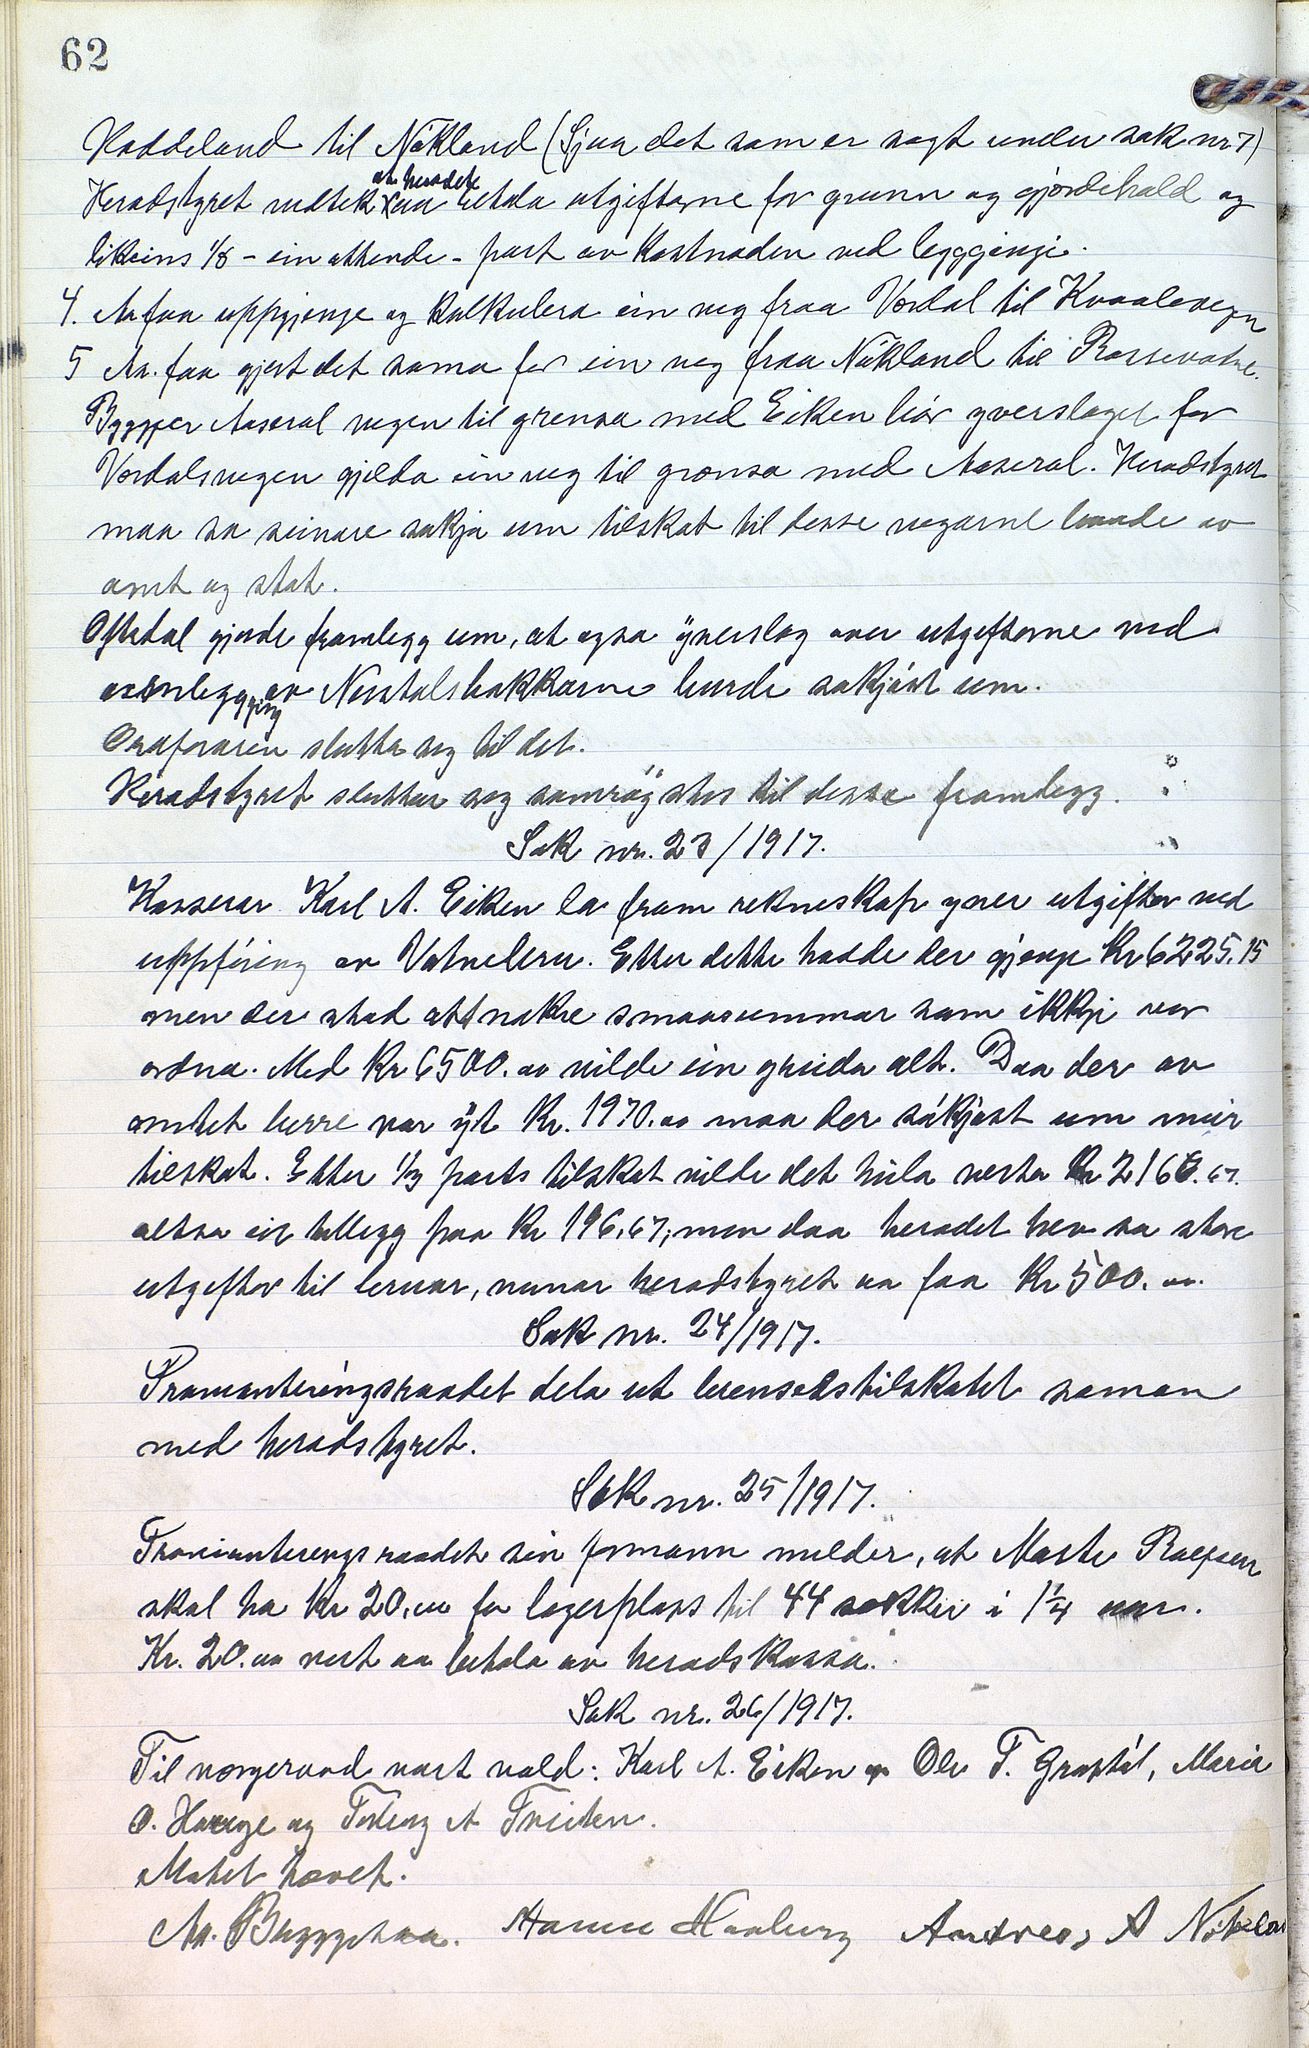 62
Haddeland til Nökland (Sjaa det som er sagt under sak nr 7)
Heradstyret vedtek at heradet betala utgiftarne for grunn og gjordehald og
likeins 1/8 - ein attende - part av kostnaden ved leggginje.
4. Aa faa uppgjenge og kalkulera ein veg fraa Vordal til Kvaalevegen
5 Aa. faa gjort det sama for ein veg fraa Nökland til Rossevatne.
Byggjer Aaseral vegen til grensa med Eiken bör yverslaget for
Vordalsvegen gjelda ein veg til grensa med Aaseral. Heradstyret
maa sa seinare søkja um tilskot til desse vegarne baade av
amt og stat.
Oftedal gjorde framlegg um, at ogsa yverslag over utgiftarne ved
umlegging av Nesstalsbakkarne burde søkjast um.
Ordføraren slutta seg til det.
Heradstyret sluttar seg samröystes til desse framlegg.
Sak nr. 23/1917.
Kasserar Karl A. Eiken la fram rekneskap yver utgifter ved
uppföring av Vatnebru. Etter dette hadde der gjenge Kr 6225,15
men der stod att nokre smaasummar som ikkje var
ordna. Med Kr 6500.00 vilde ein greida alt. Daa der av
amtet berre var yt Kr. 1970.00 maa der sökjast um meir
tilskot. Etter 1/3 parts tilskot vilde det heila verta Kr 2166.67.
altsa eit tillegg paa Kr 196.67; men daa heradet hev sa store
utgifter til bruar, vonar heradstyret aa faa Kr 500.00.
Sak nr. 24/1917.
Provianteringsraadet dela ut brensedstilskotet saman
med heradstyret.
Sak nr. 25/1917.
Provianteringsraadet sin formann melder, at Marte
skal ha Kr 20.00 for lagerplass til 44 sekker i 1 1/4 aar.
Kr. 20.00 vert aa betala av heradskassa.
Sak nr. 26/1917.
Til vergeraad vart vald: Karl A. Eiken og Ole T. Gravdal, Marie
O. Hauge og Torborg A Tveiten.
Motet hævet.
Aa. Byggstaa. Hanne Hauburg Andreas A Nökland